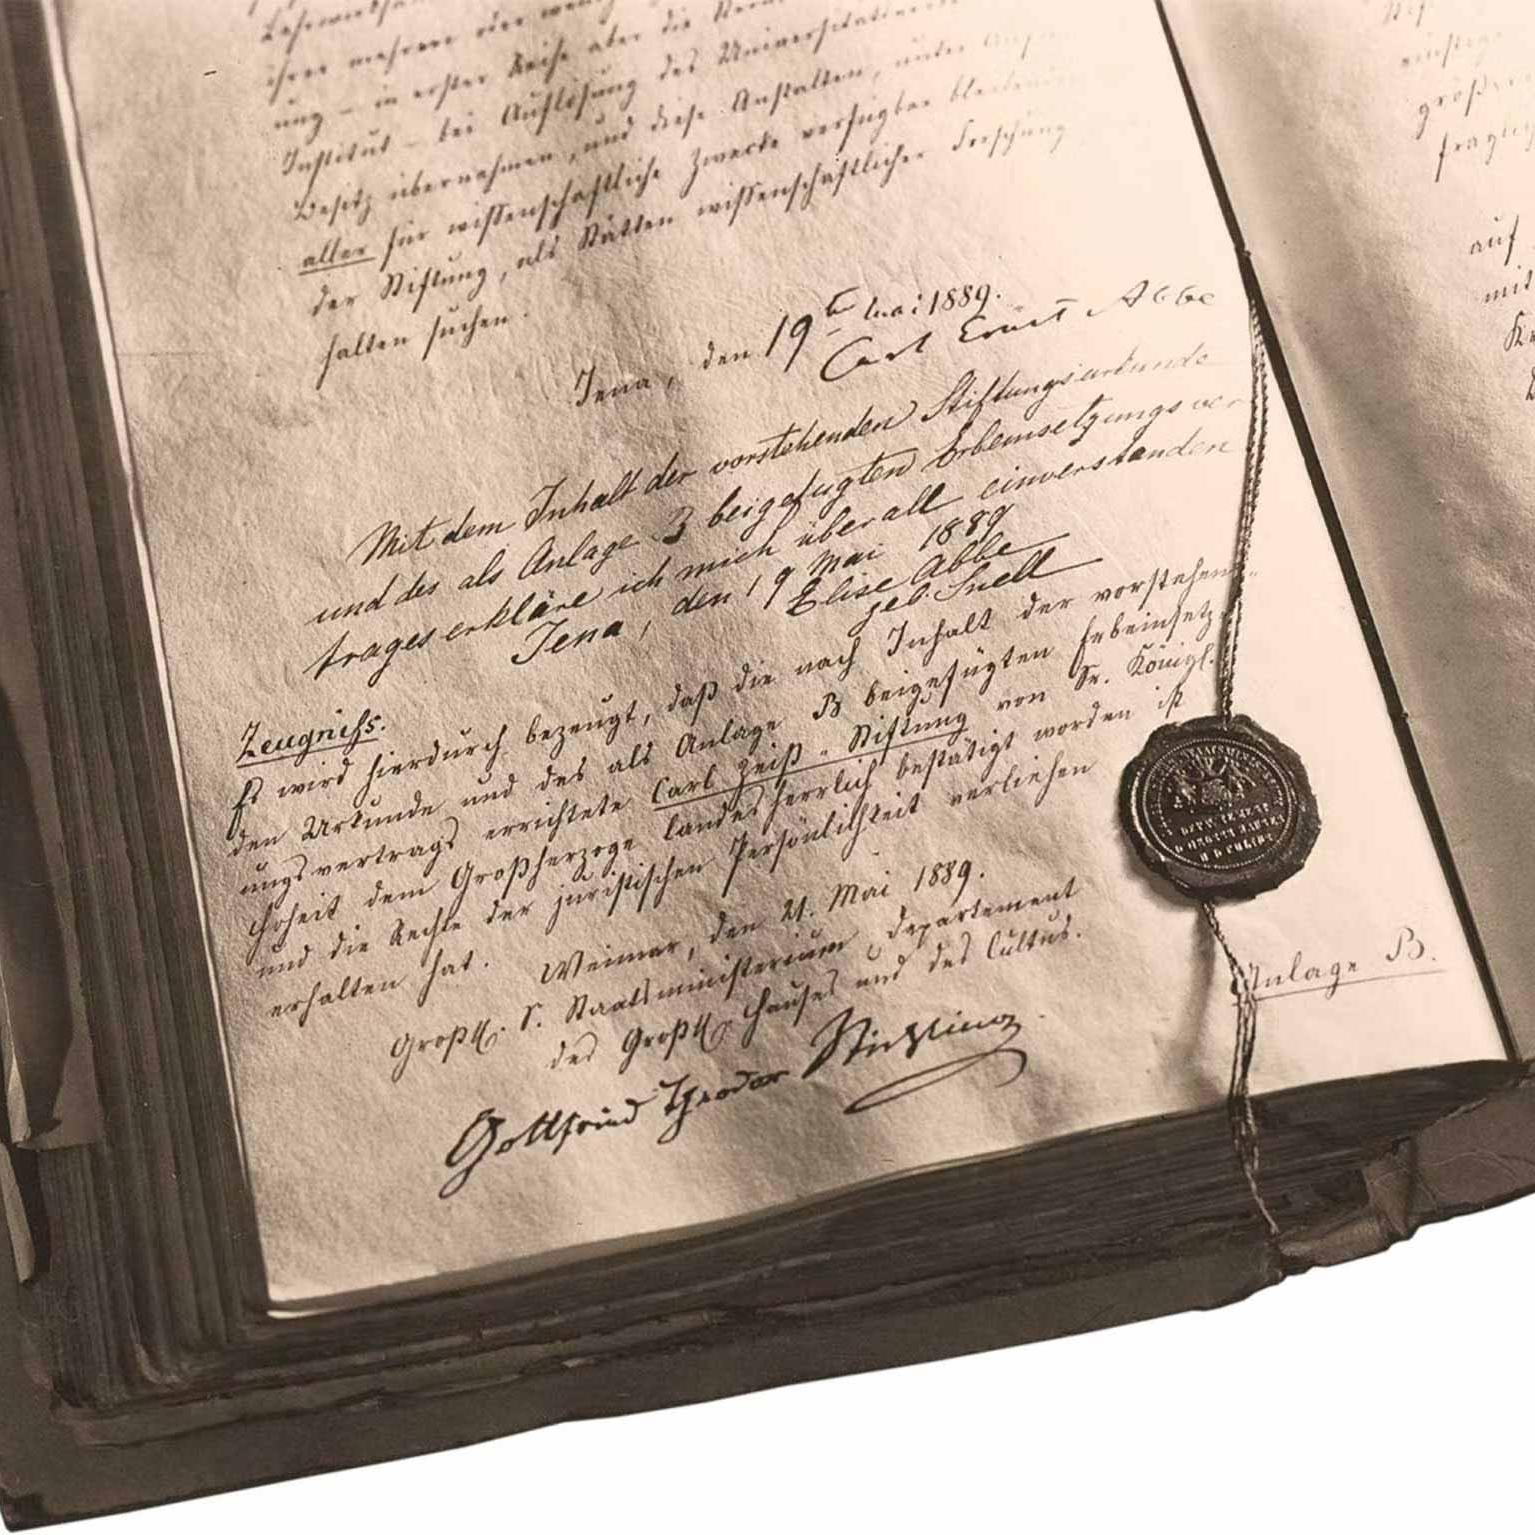 ihre mehrere oder
ung – in erster Reihe aber die
Institut – bei Auflösung des Universitäts
Besitz übernehmen, und diese Anstalten, unter
aller für wissenschaftliche Zwecke verfügbar bleibenden
der Stiftung, als Stätten wissenschaftlicher Forschung
halten suchen.
Jena, den 19ten Mai 1889.
Carl Ernst Abbe
Mit dem Inhalt der vorstehenden Stiftungsurkunde
und des als Anlage B beigefügten Erbeinsetzungsver
trages erkläre ich mich überall einverstanden
Jena, den 19 Mai 1889
Elise Abbe
geb. Snell
Zeugniss.
Es wird hierdurch bezeugt, daß die nach Inhalt der vorstehen-
den Urkunde und des als Anlage B beigefügten Erbeinsetz-
ungsvertrags errichtete Carl Zeiß-Stiftung von Sr. Königl.
Hoheit dem Großherzoge landesherrlich bestätigt worden ist
und die Rechte der juristischen Persönlichkeit verliehen
erhalten hat.
Weimar, den 21. Mai 1889.
Großh. S. Staatsministerium, Departement
des Großh. Hauses und des Cultus.
Gottfried Theodor Stichling
DEPARTEMENT
D. GROSSH. HAUSES
U. D. CULTUS
Anlage B.
auf
mit